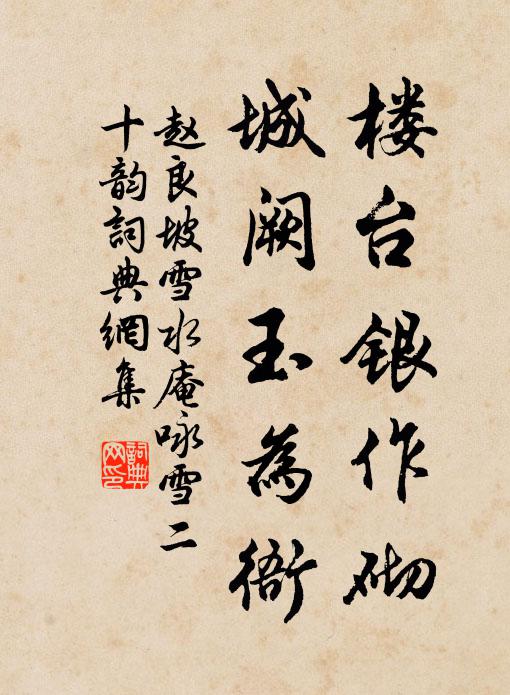 楼台银作砌
城阙玉为衙
赵良坡雪水庵咏雪二
十韵词典網集
詞典网印